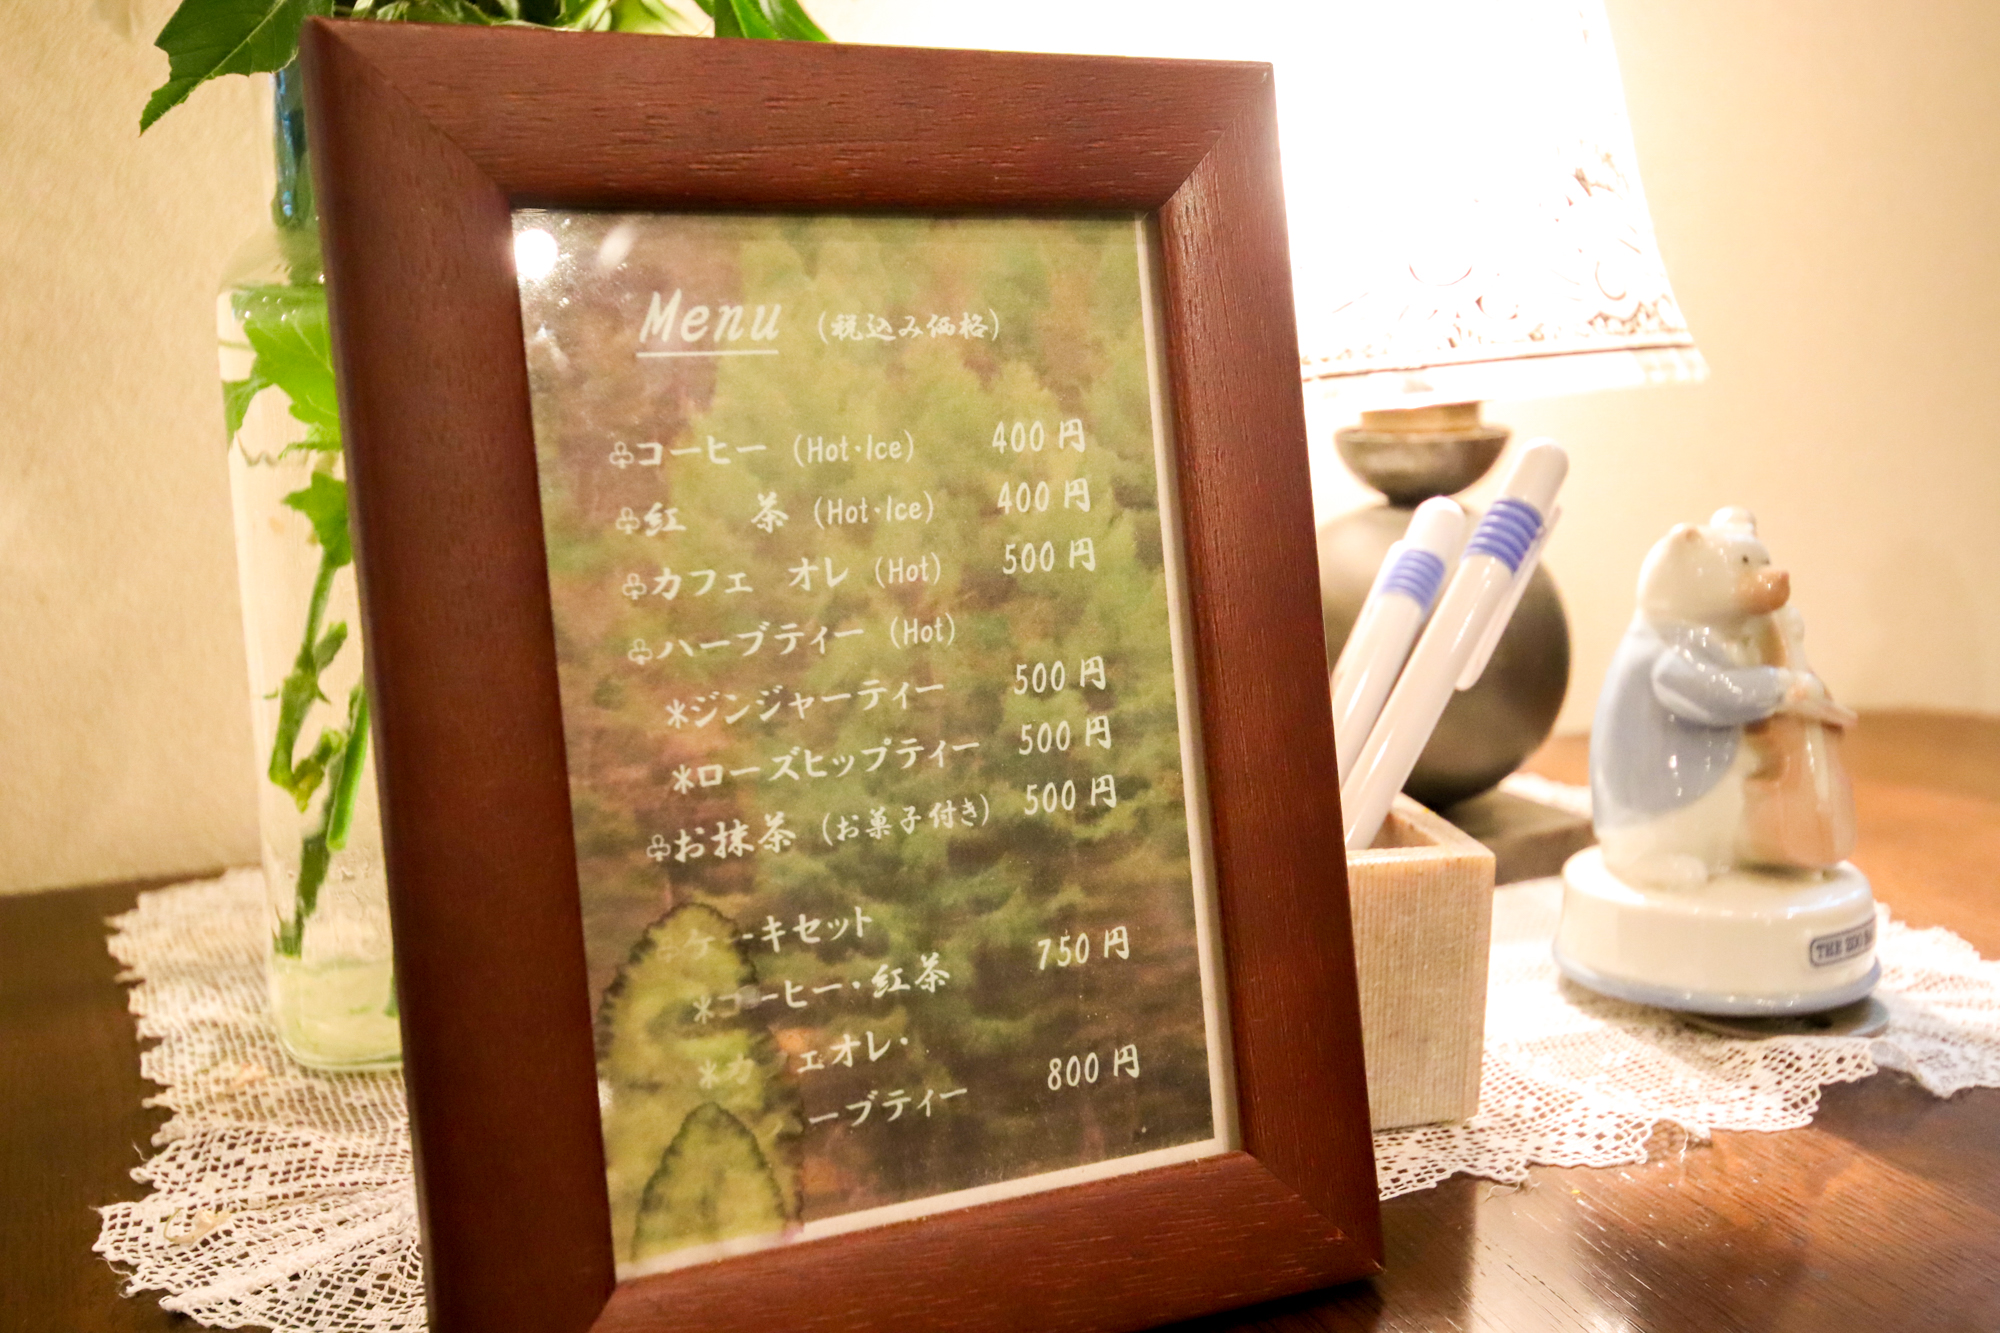 Menu (税込み価格)
♧コーヒー (Hot・Ice) 400円
♧紅 茶 (Hot・Ice) 400円
♧カフェ オレ (Hot) 500円
♧ハーブティー (Hot)
*ジンジャーティー 500円
*ローズヒップティー 500円
♧お抹茶 (お菓子付き) 500円
ケーキセット
*コーヒー・紅茶 750円
*カフェオレ・
ーブティー 800円
THE